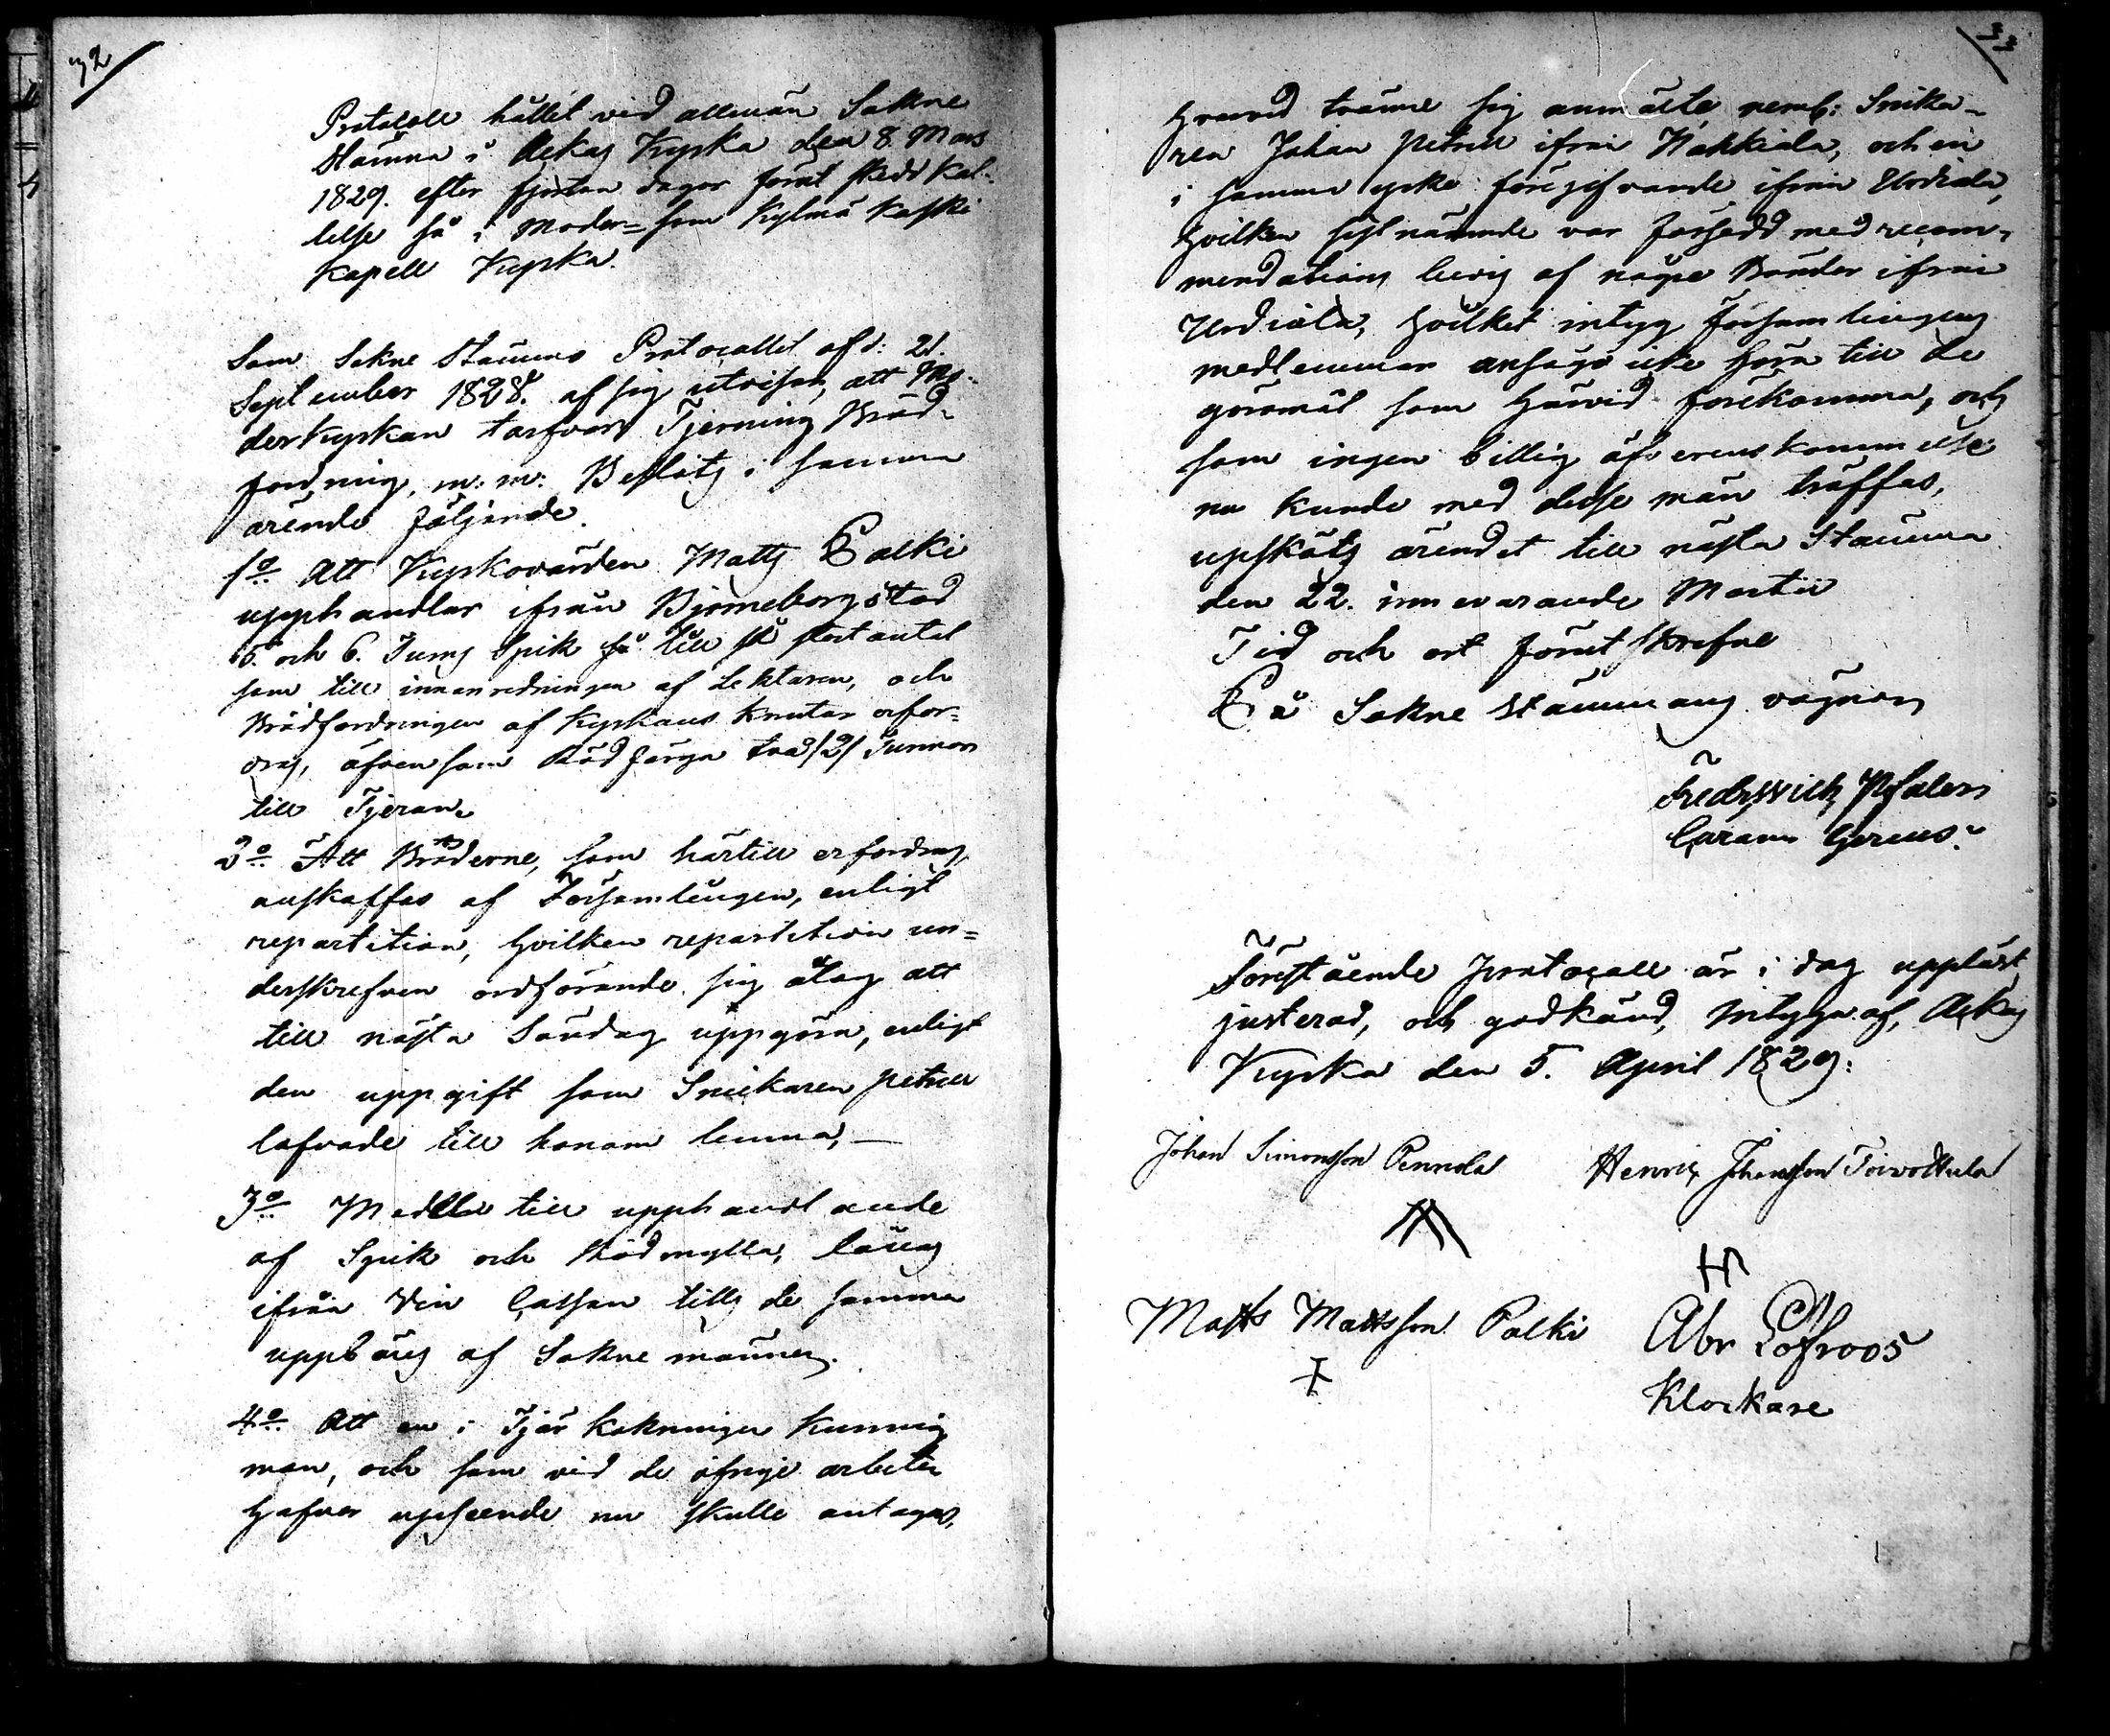 32
Protocoll hållet vid allmän Sokne
Stämma i Ackas Kyrka den 8. Mars
1829. efter fjorton dagar förut skedd kal-
lelse så i Moder= som Kylmä Koski
Kapell Kyrka.
Som Sokne Stämmo Protocollet af d: 21.
September 1828. af sig utvisar, att Mo-
derkyrkan tarfvar Tjerning Bräd-
fordning, m: m: Beslöts i samma
ärende följande.
1o Att Kyrkovärden Matts Palki
upphandlar ifrån Björneborgs Stad
5. och 6. Tums Spik så till så stort antal
som till innanredningen af Lektaren, och
Brädfordringen af Kyrkans Knutar erfor-
dras, äfvensom Röd färga två /2/ Tunnor
till Tjeran.
2o Att Bräderne, som härtill erfordras
anskaffas af Församlingen, enligt
repartition, hvilken repartition un=
derskrefven ordförande sig åtog att
till nästa Söndag uppgöra, enligt
den uppgift som Snickaren Petrell
lofvade till honom lemna,
3o Medlen till upphandlande
af Spik och Rödmylla, lånas
ifrån Vin Cassan tills de samma
uppbäras af Sokne männen.
4o Att en i Tjär kokningen kunnig
man, och som vid de öfrige arbeten
hafver upseende nu skulle antagas,
33
hvarvid tvänne sig anmälte neml: Snika-
ren Johan Petrell ifrån Nakkiala, och en
i samma yrke föregifvande ifrån Urdiala,
hvilken sistnämnde var försedd med recom-
mendations bevis af någre Bönder ifrån
Urdiala, hvilket intyg Församlingens
medlemmar ansågo icke höra till de
göromål som härvid förekomma, och
som ingen billig öfverenskommelse
nu kunde med desse män träffas,
upsköts ärendet till nästa Stämma
den 22. innevarande Martii
Tid och ort förut skrefne
På Sokne Stämmans vägnar
Fredr: Wilh: Pfaler
Förestående Protocoll är i dag uppläst
justerad, och godkänd, intygas af, Ackas
Kyrka den 5. April 1829:
Johan Simonsson Pennola Henric Johansson Toivottula
Matts Mattsson Palki Abr Löfroos
Klockare